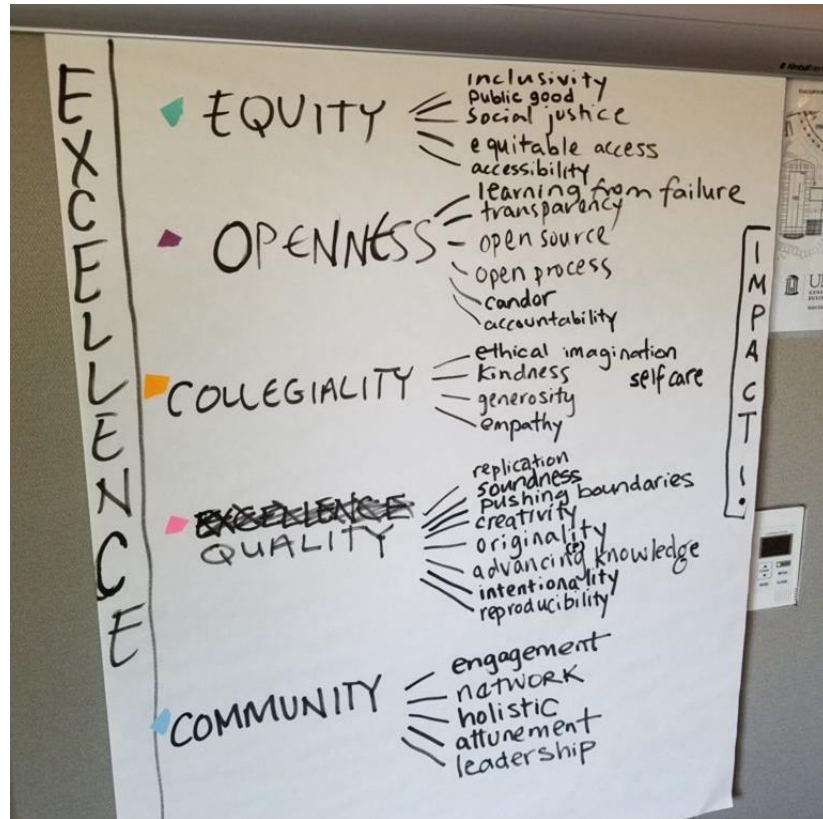 EXCELLENCE
EQUITY
inclusivity
public good
social justice
equitable access
accessibility
OPENNESS
learning from failure
transparency
open source
open process
candor
accountability
COLLEGIALITY
ethical imagination
kindness
self care
generosity
empathy
EXCELLENCE
QUALITY
replication
soundness
pushing boundaries
creativity
originality
advancing (?) knowledge
intentionality
reproducibility
COMMUNITY
engagement
NETWORK
holistic
attunement
leadership
IMPACT!